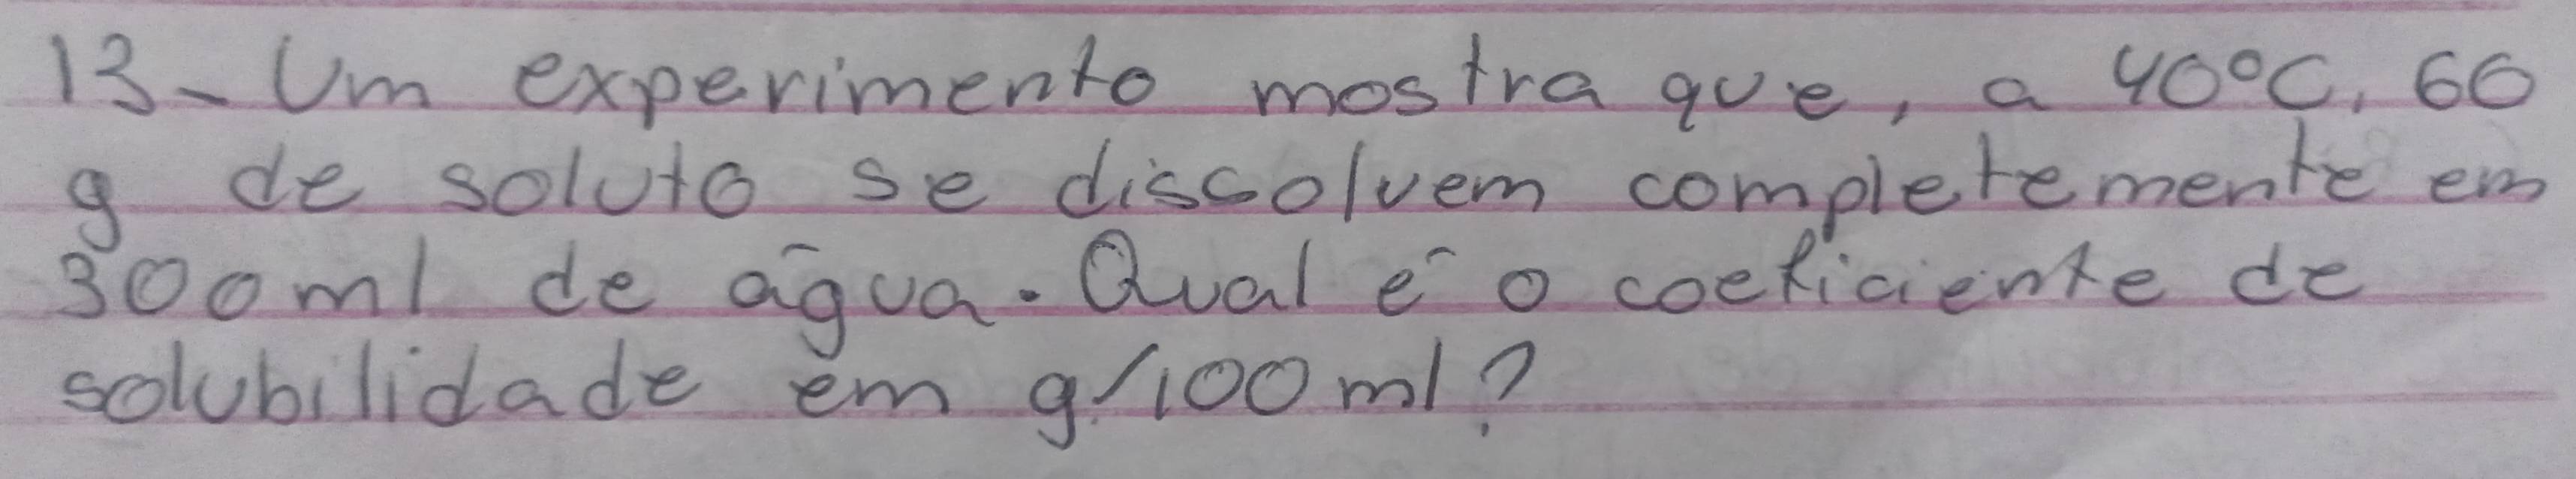 13- Um experimento mostra que, a 40°C, 60
g de soluto se dissolvem completemente em
300ml de água. Qual é o coeficiente de
solubilidade em g/100ml?